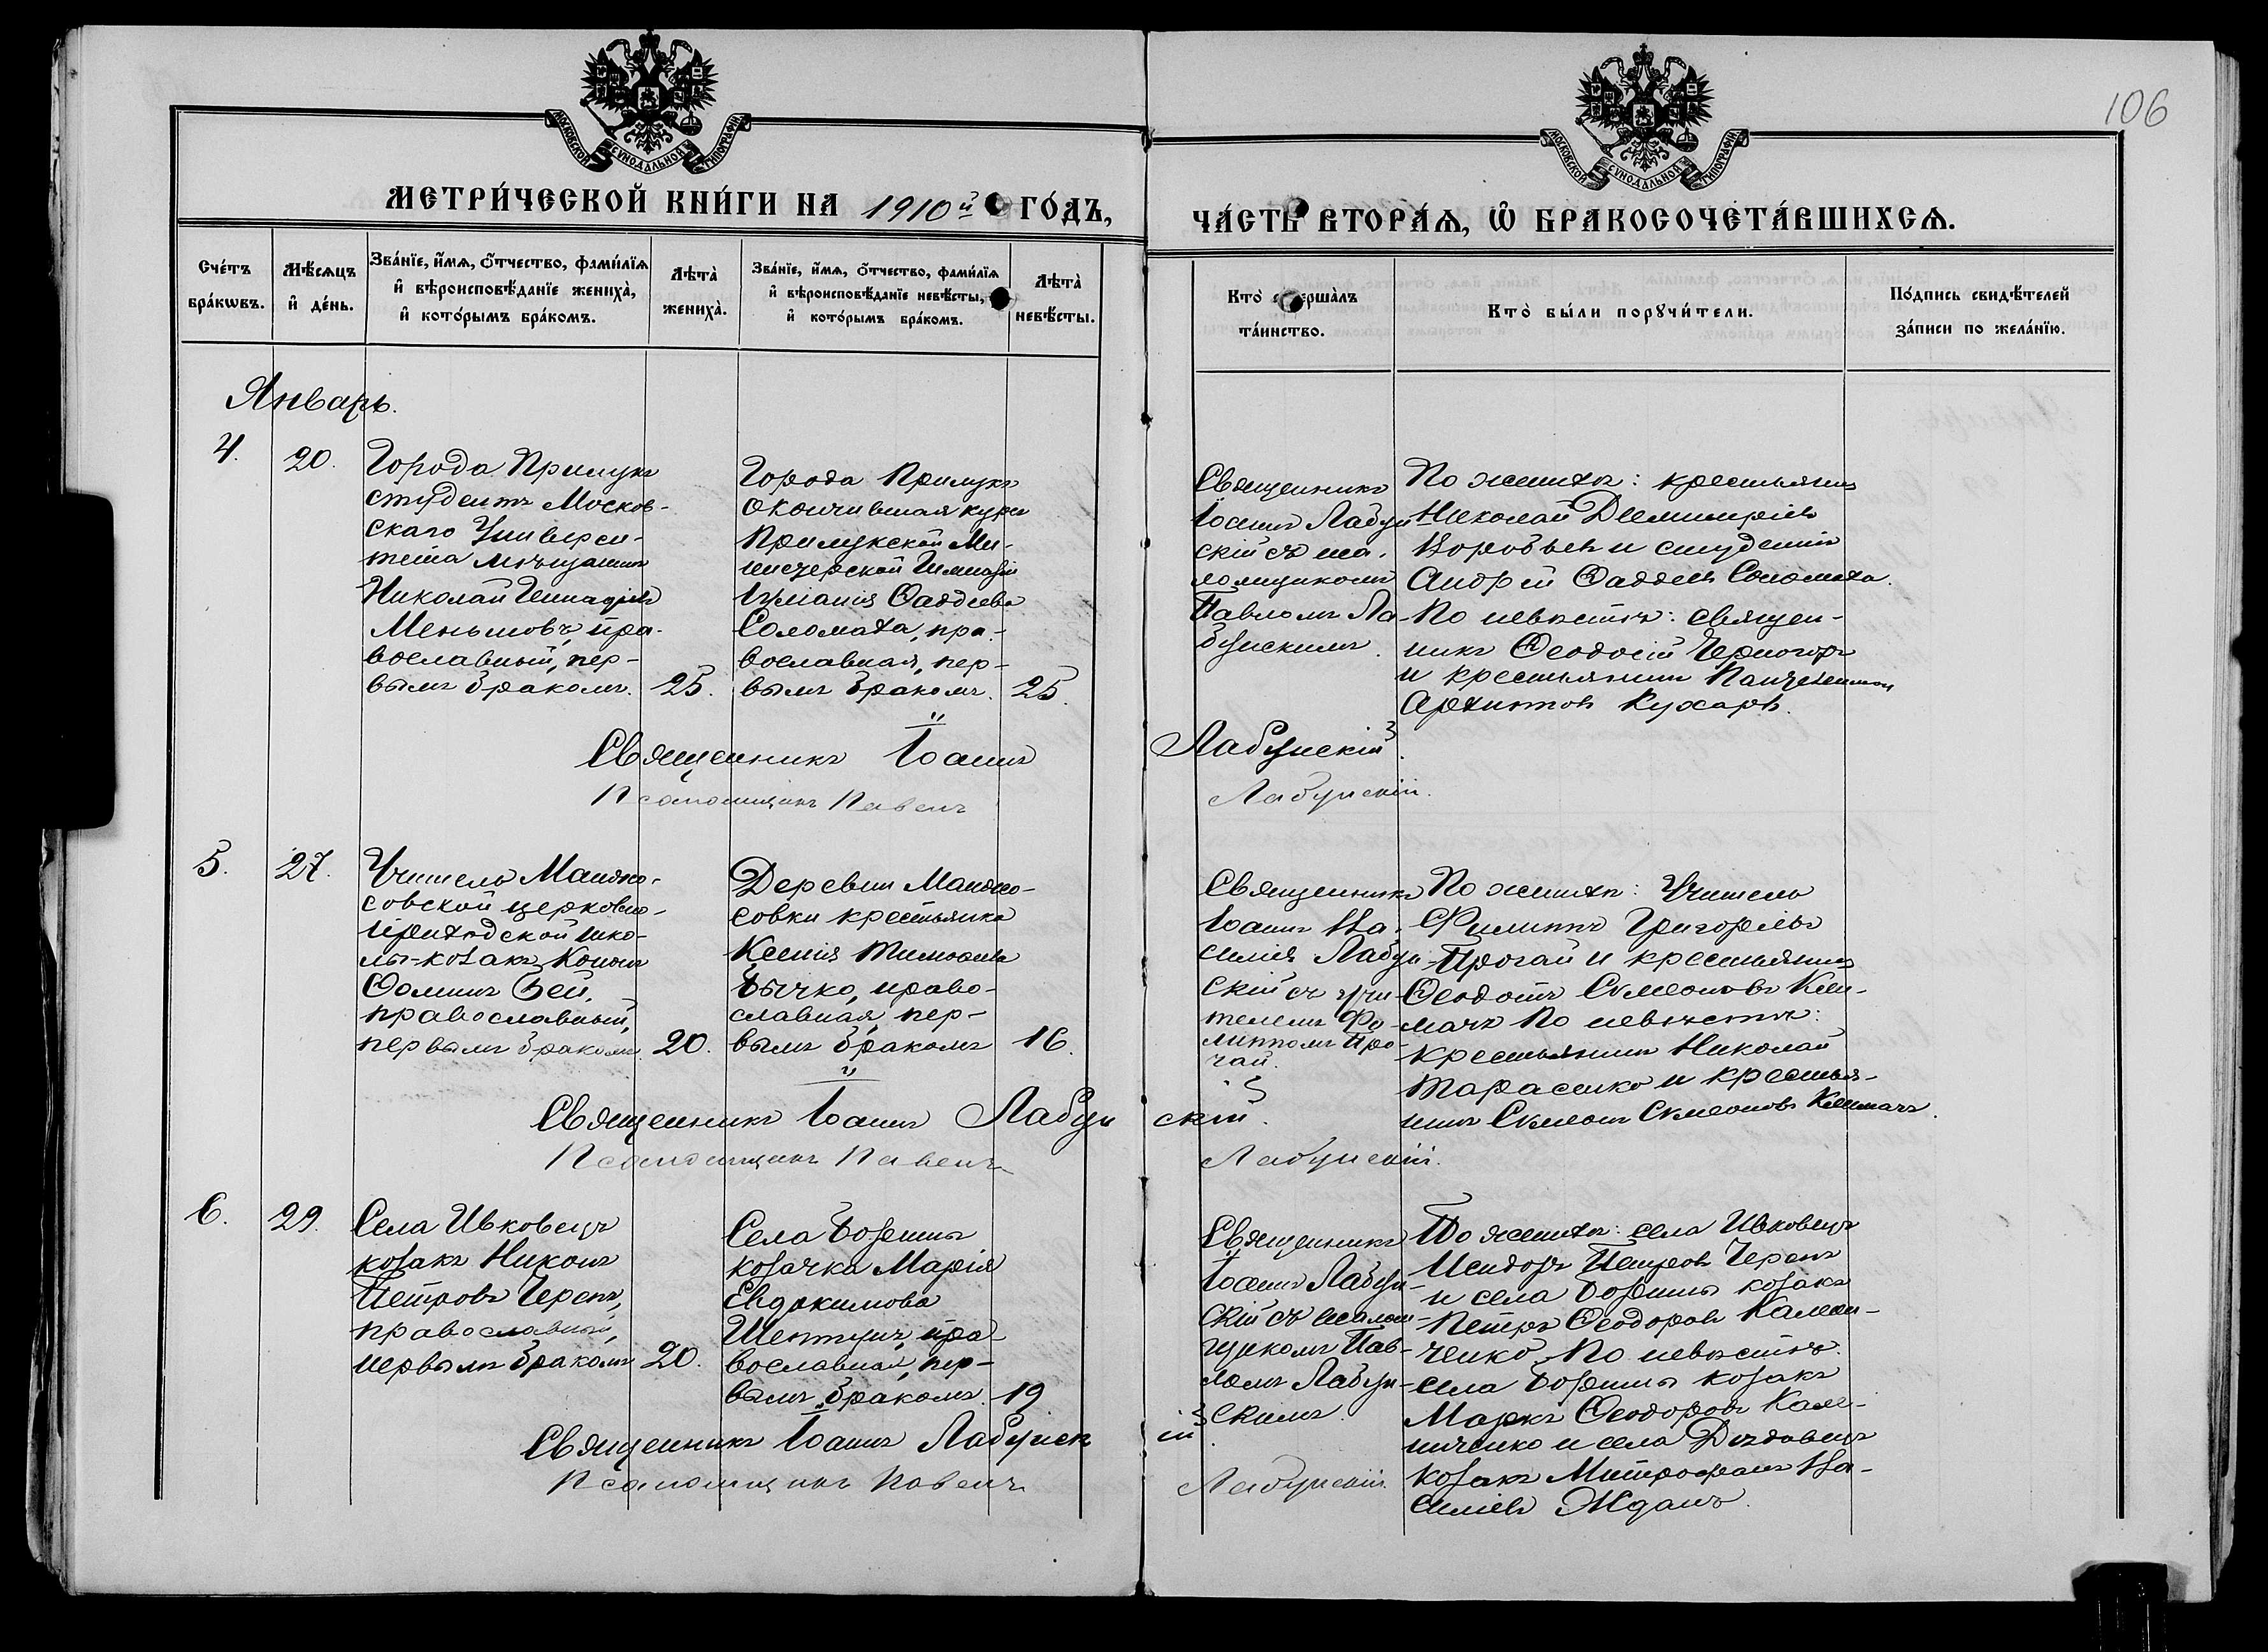 106
МОСКОВСКОЙ СѴНОДАЛЬНОЙ ТИПОГРАФІИ
МОСКОВСКОЙ СѴНОДАЛЬНОЙ ТИПОГРАФІИ
МЕТРИ́ЧЕСКОЙ КНИ́ГИ НА 1910й ГО́ДЪ,
ЧА́СТЬ ВТОРА́Ѧ, Ѽ БРАКОСОЧЕТА́ВШИХСѦ.
Сче́тъ бра́кѡвъ.
Мѣ́сѧцъ и҆ де́нь.
Зва́нїе, и҆́мѧ, ѻ҆́тчество, фами́лїѧ
и҆ вѣроисповѣ́данїе жениха̀,
и҆ кото́рымъ бра́комъ.
Лѣта̀ жениха̀.
Зва́нїе, и҆́мѧ, ѻ҆́тчество, фами́лїѧ
и҆ вѣроисповѣ́данїе невѣ́сты,
и҆ кото́рымъ бра́комъ.
Лѣта̀ невѣ́сты.
Кто̀ соверша̀лъ
та́инство.
Кто̀ бы́ли порꙋчи́тели.
По́дпись свидѣ́телей
за́писи по жела́нїю.
Январь.
4.
20.
Города Прилукъ
студентъ Москов-
скаго Универси-
тета мѣщанинъ
Николай Геннадіевъ
Меньшовъ, пра-
вославный, пер-
вымъ бракомъ.
25.
Города Прилукъ
окончившая курсъ
Прилукской Ми-
нистерской Гимназіи
Фаддеева
Соломаха, пра-
вославная, пер-
вымъ бракомъ.
25.
Священникъ
Іоаннъ Лабун-
скій съ пса-
ломщикомъ
Павломъ Ла-
бунскимъ.
По женихѣ: крестьянинъ
Николай Димитріевъ
Воробьевъ и студентъ
Андрей Фаддеевъ Соломаха.
По невѣстѣ: священ-
никъ Ѳеодосій Черногоръ
и крестьянинъ Пантелеимонъ
Кухарь.
Священникъ Іоаннъ Лабунскій.
Псаломщикъ Павелъ Лабунскій.
5.
27.
Учитель Манжо-
совской церковно-
приходской шко-
лы-козакъ Кононъ
Ѳоминъ Зей,
православный,
первымъ бракомъ.
20.
Деревни Манжо-
совки крестьянка
Ксенія Тимофеева
Бычко, право-
славная, пер-
вымъ бракомъ
16.
Священникъ
Іоаннъ Ва-
силіевъ Лабун-
скій съ учи-
телемъ Фи-
липпомъ Про-
чай.
По женихѣ: Учитель
Филиппъ Григоріевъ
Прочай и крестьянинъ
Ѳеодотъ Симеоновъ Кли-
мачъ По невѣстѣ:
крестьянинъ Николай
Тарасенко и крестья-
нинъ Симеонъ Симеоновъ Климачъ.
Священникъ Іоаннъ Лабунскій.
Псаломщикъ Павелъ Лабунскій.
6.
29.
Села Ивковецъ
козакъ Никонъ
Петровъ Черепъ,
православный,
первымъ бракомъ
20.
Села Богдановки
козачка Марія
Евдокимова
Шептунъ, пра-
вославная, пер-
вымъ бракомъ.
19.
Священникъ
Іоаннъ Лабун-
скій съ псалом-
щикомъ Пав-
ломъ Лабун-
скимъ.
По женихѣ: села Ивковецъ
Исидоръ Петровъ Черепъ
и села козакъ
Петръ Ѳеодоровъ
По невѣстѣ:
села козакъ
Маркъ Ѳеодоровъ Кали-
ниченко и села Дѣдовецъ
козакъ Митрофанъ Ва-
силіевъ Жданъ.
Священникъ Іоаннъ Лабунскій.
Псаломщикъ Павелъ Лабунскій.